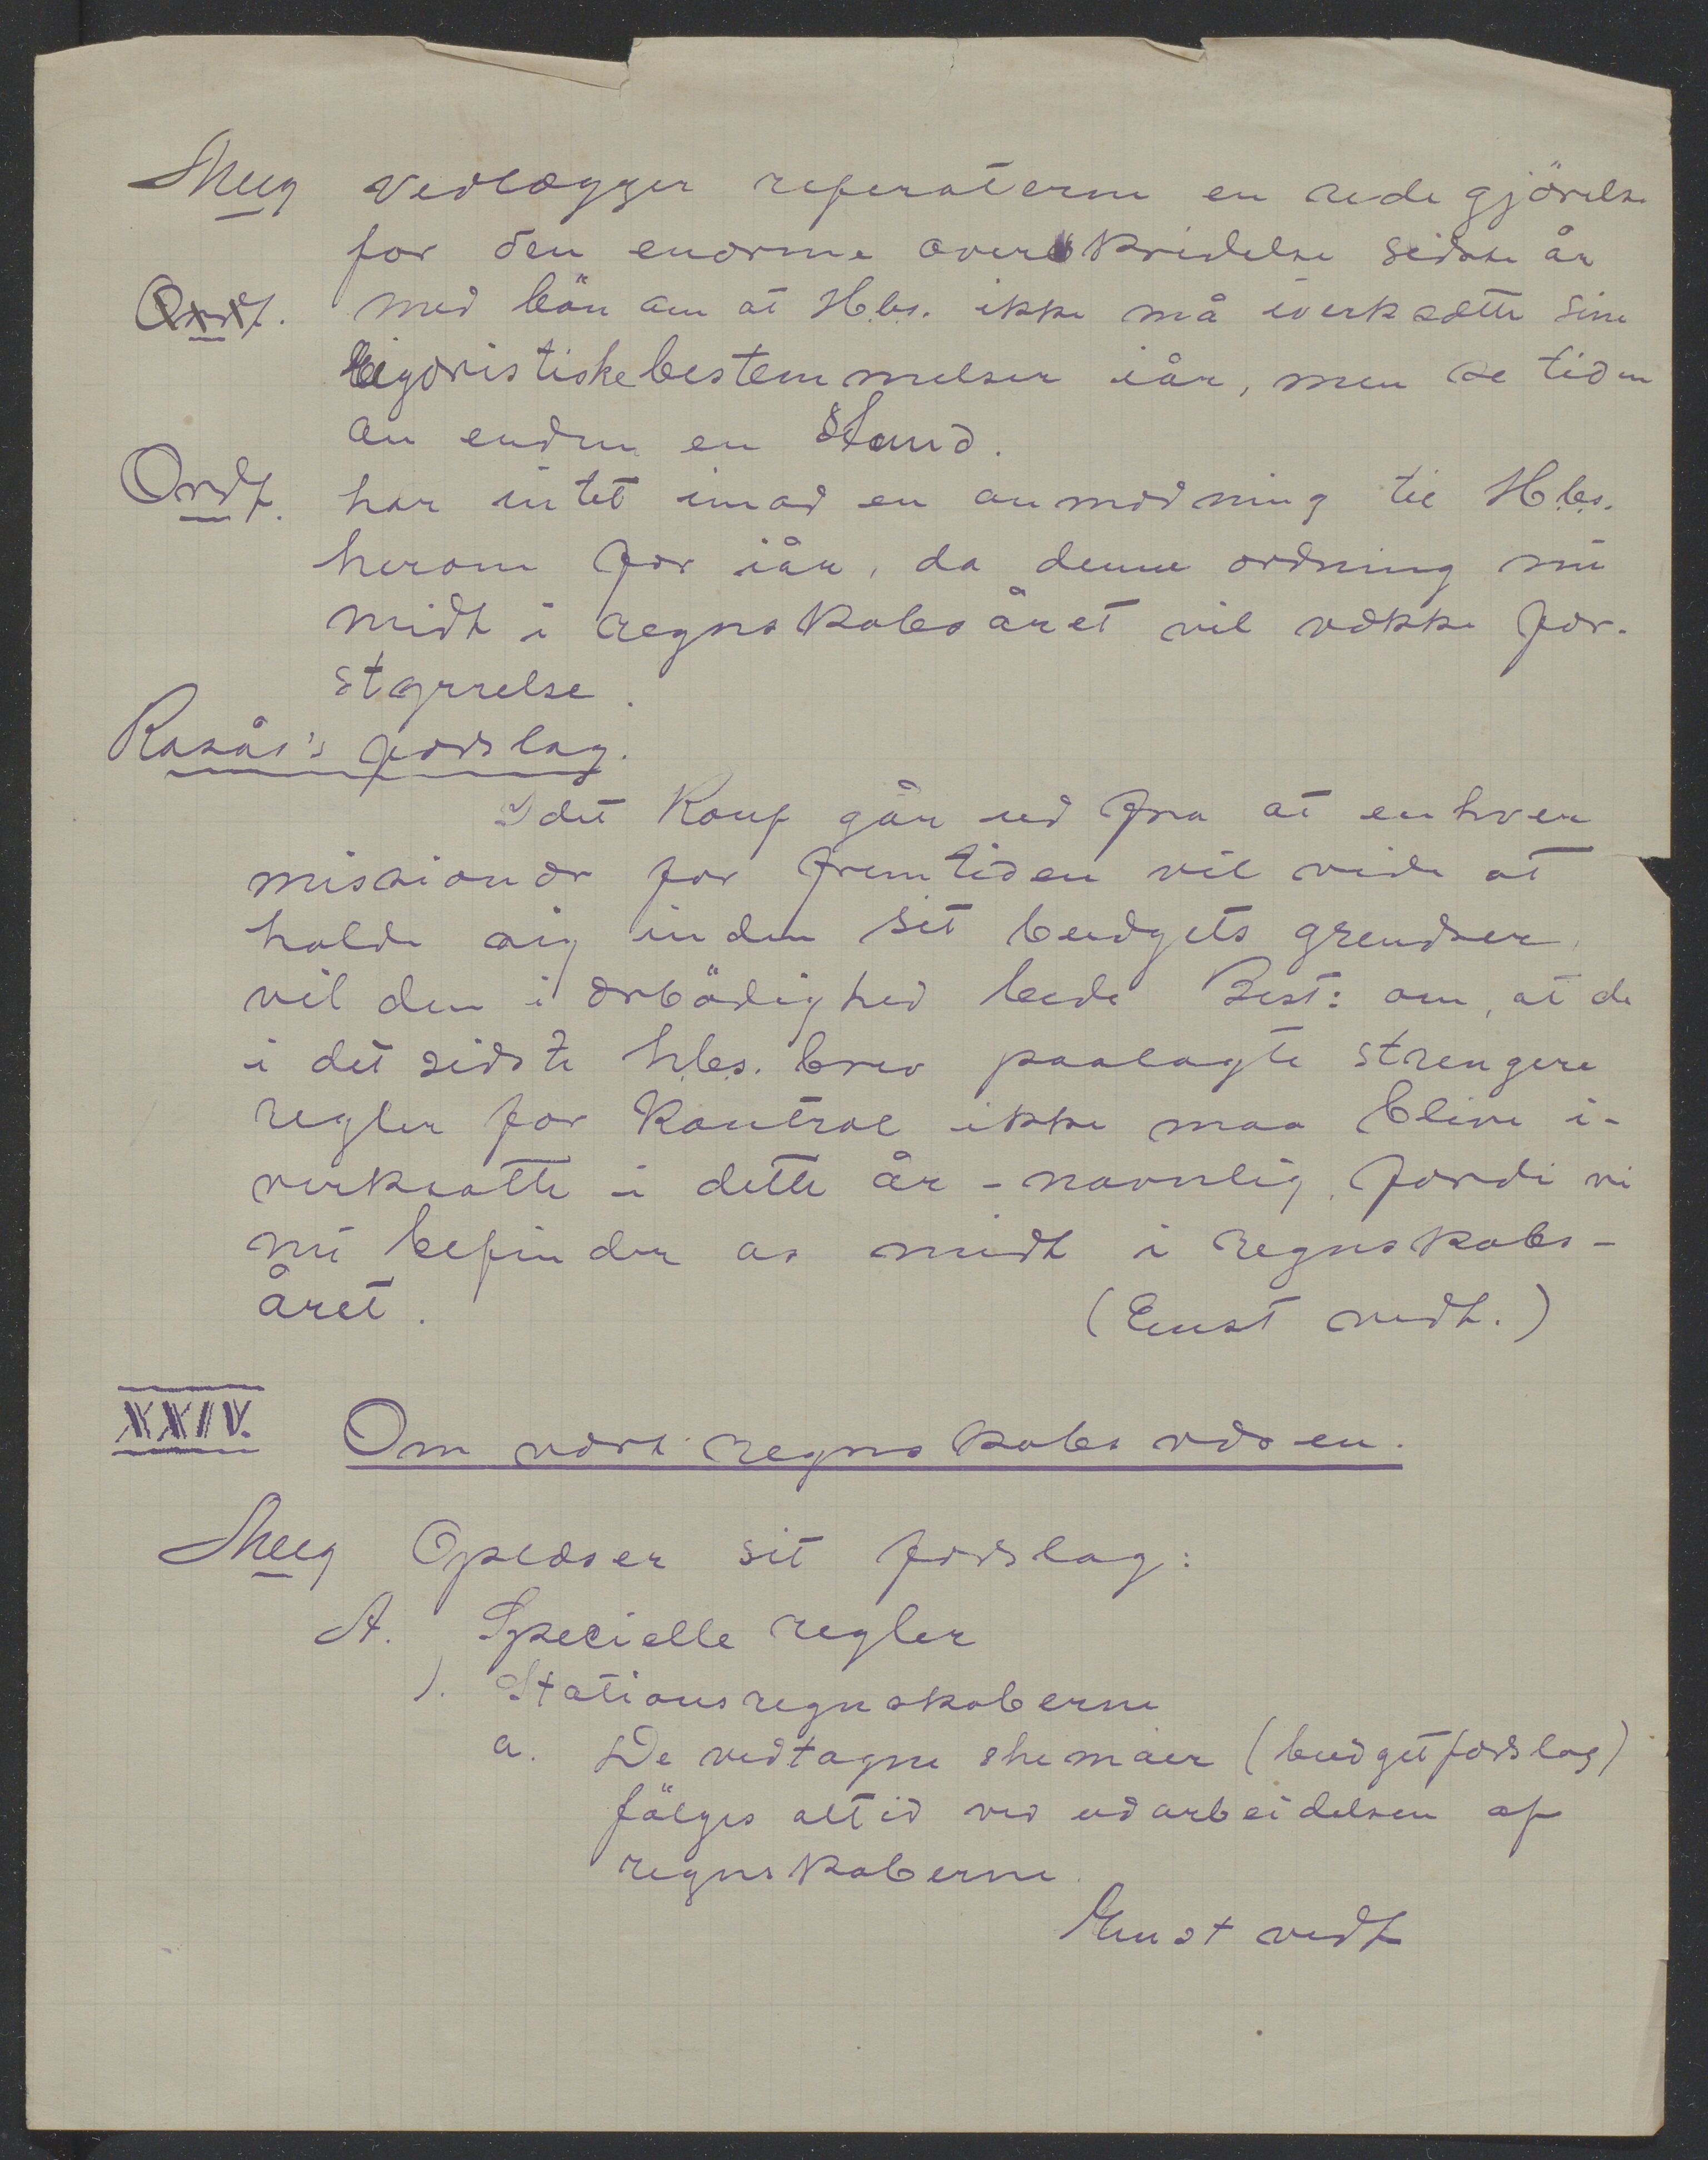 Meeg vedlægger referaterne en redegjörelse
for den enorme overskridelse sidste år
Ordf. med bön om at Hbs. ikke må iverksætte sine
rigoristiske bestemmelser iår, men se tiden
an endnu en stund.
Ordf. har intet imod en anmodning til Hbs.
herom for iår, da denne ordning nu
midt i regnskabsåret vil vække for-
styrrelse.
Rasås's forslag.
Idet Konf går ud fra at enhver
missionær for fremtiden vil vide at
holde sig inden sit budgets grendser,
vil den i ærbödighed bede Best: om, at de
i det sidste hbs. brev paalagte strengere
regler for kontrol ikke maa blive i-
verksatte i dette år - navnlig fordi vi
nu befinder os midt i regnskabs-
året. (Enst vedt.)
XXIV. Om vort regnskabsvæsen.
Meeg Oplæser sit forslag:
A. Specielle regler
1. Stationsregnskaberne
a. De vedtagne shemaer (budgetforslag)
fölges altid ved udarbeidelsen af
regnskaberne.
Enst vedt